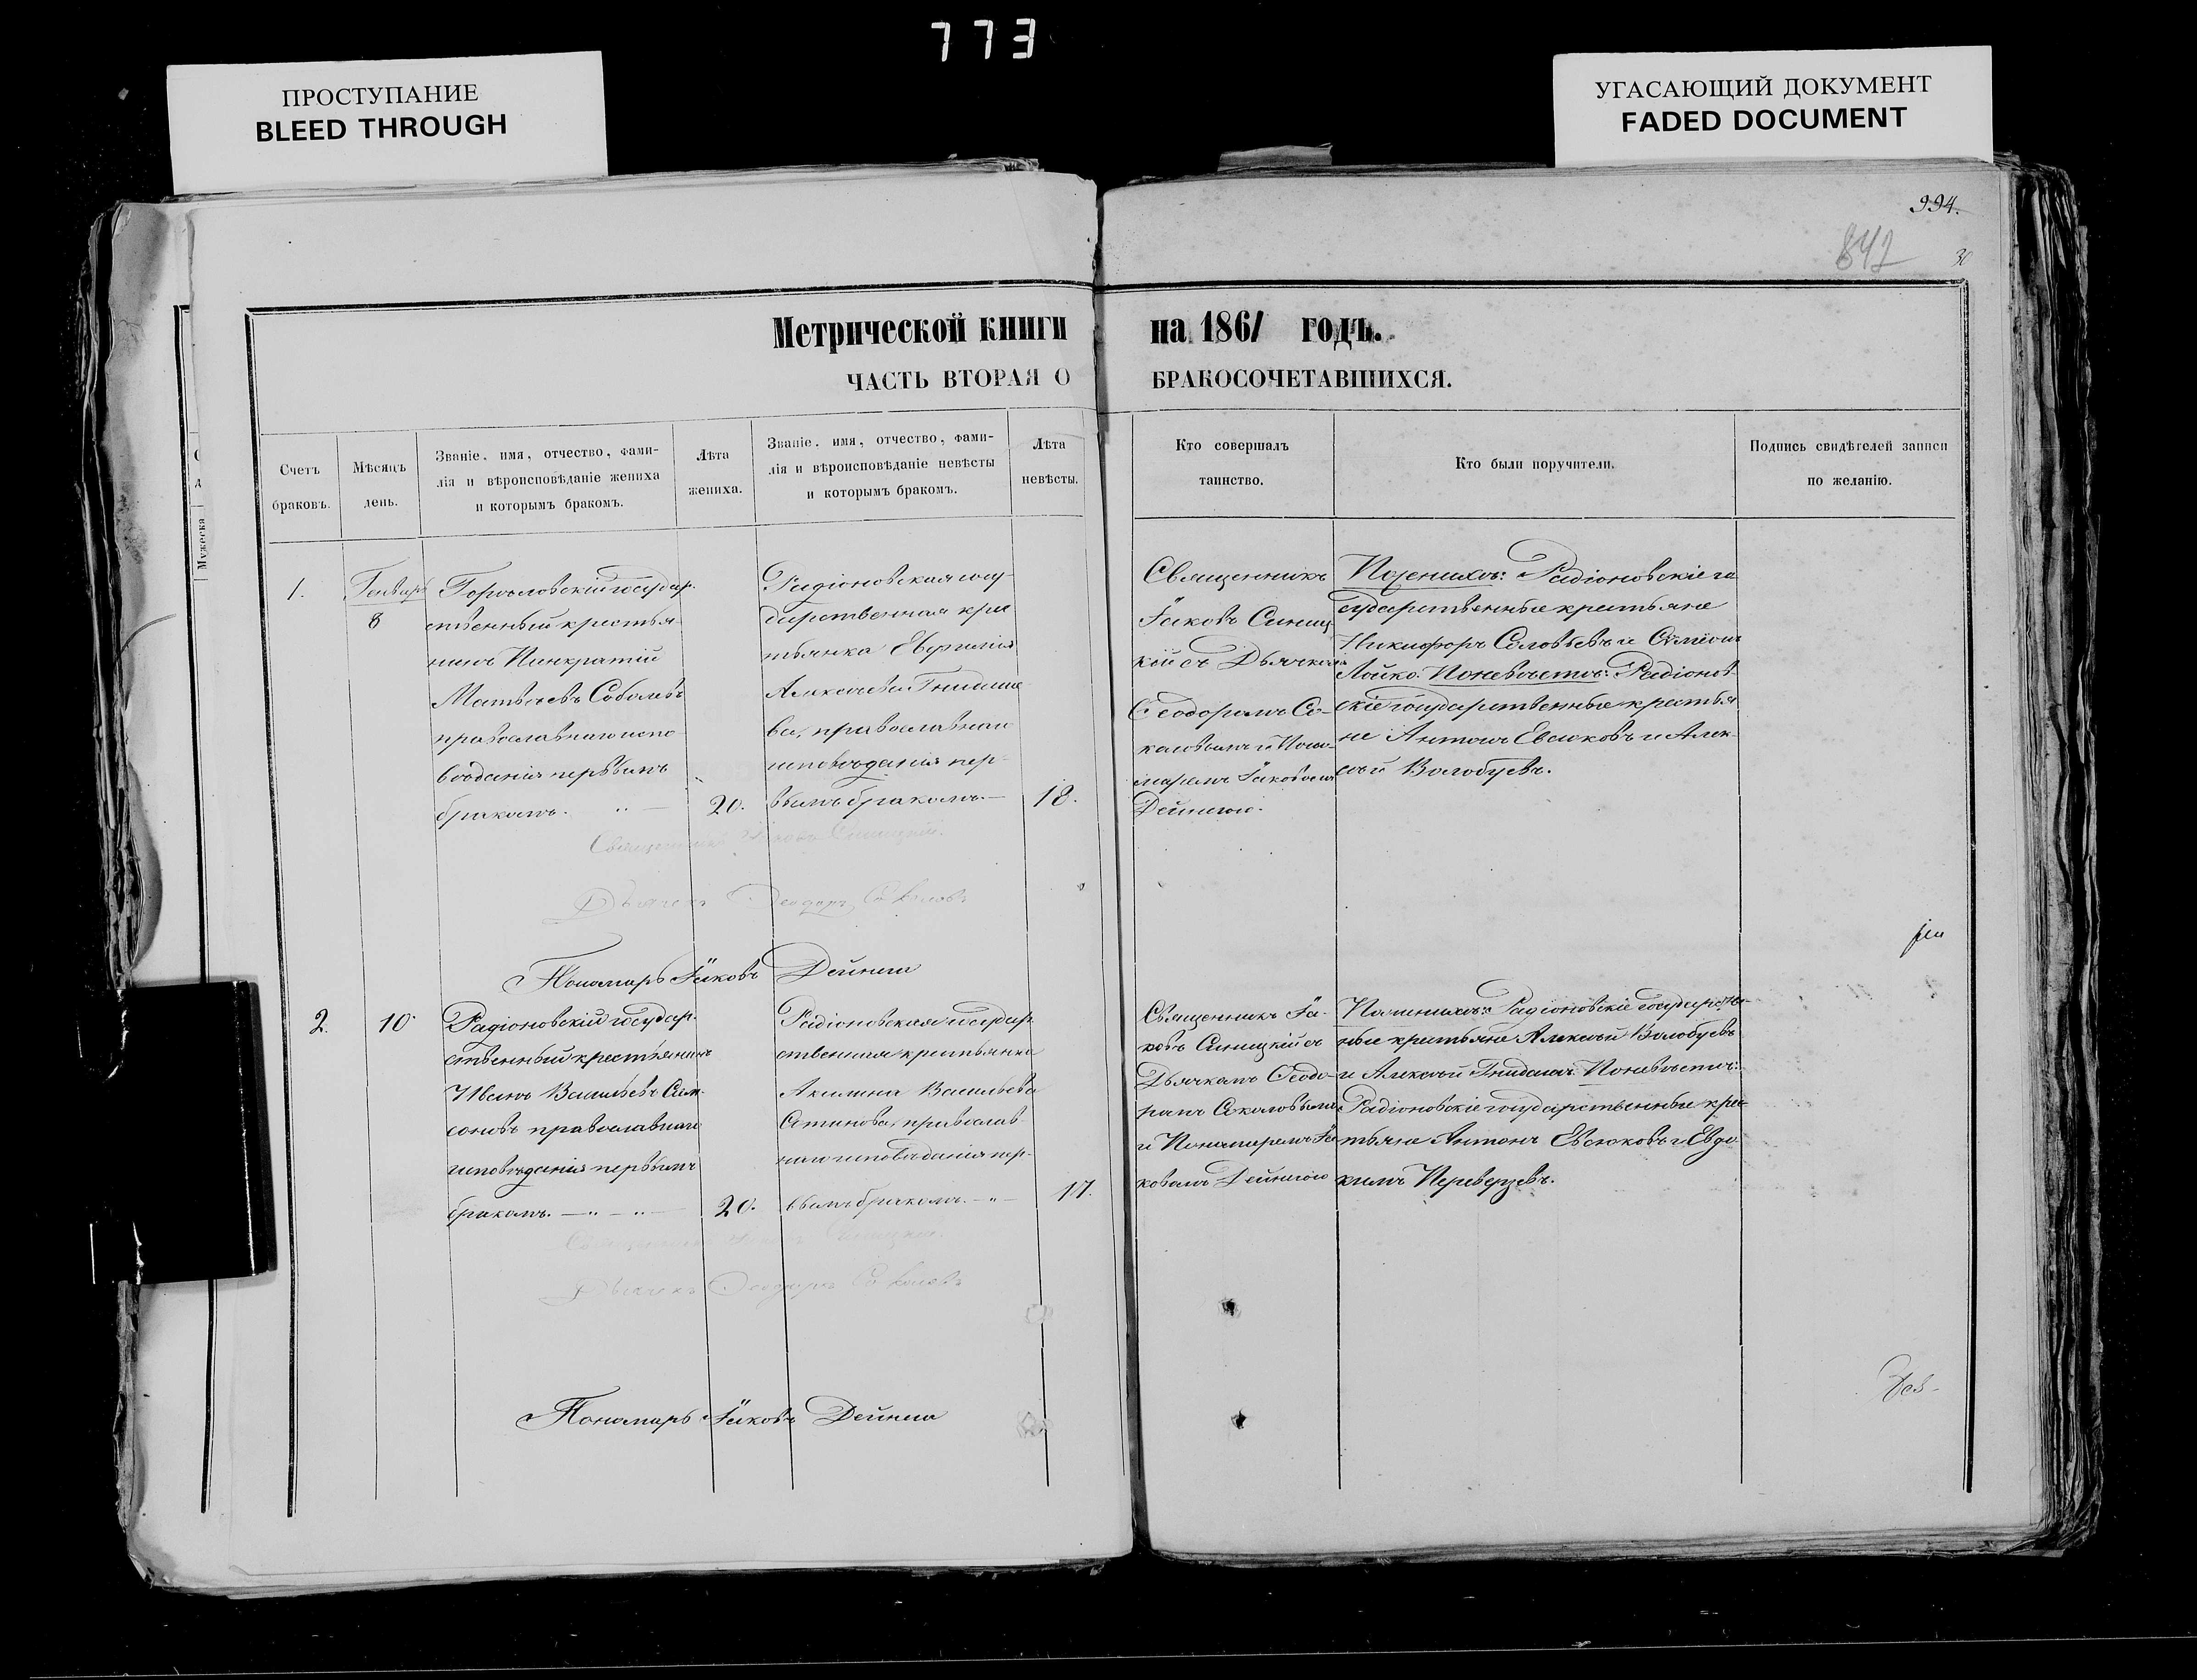 773
ПРОСТУПАНИЕ
BLEED THROUGH
УГАСАЮЩИЙ ДОКУМЕНТ
FADED DOCUMENT
994.
842
30
Метрической книги на 1861 годъ.
ЧАСТЬ ВТОРАЯ О БРАКОСОЧЕТАВШИХСЯ.
Счетъ
браковъ.
Мѣсяцъ
день.
Званіе, имя, отчество, фами-
лія и вѣроисповѣданіе жениха
и которымъ бракомъ.
Лѣта
жениха.
Званіе, имя, отчество, фами-
лія и вѣроисповѣданіе невѣсты
и которымъ бракомъ.
Лѣта
невѣсты.
Кто совершалъ
таинство.
Кто были поручители.
Подпись свидѣтелей записи
по желанію.
Мужеска
1.
Генварь
8
государ-
ственный крестья-
нинъ Панкратій
Матвѣевъ Соболевъ
православнаго испо
вѣданія первымъ
бракомъ.
20.
Радіоновская госу-
дарственная кре
тьянка Евфимія
Алексѣева Гнидина
ва, православнаго
исповѣданія пер-
вымъ бракомъ.
18.
Священникъ
Іаковъ Синиц
кій съ Дьячкомъ
Ѳеодоромъ Со-
каловымъ и Поно-
маремъ Іаковомъ
Дейнегою.
По женихѣ: Радіоновскіе го
сударственные крестьяне
Никифоръ Соловьевъ и Симеонъ
Лойко. По невѣстѣ: Радіонов-
скіе государственные крестья
не Антонъ Евсюковъ и Алек-
сѣй Волобуевъ.
Священникъ Іаковъ Синицкій.
Дьячекъ Ѳеодоръ Соколовъ
Пономарь Іаковъ Дейнега
2.
10
Радіоновскій государ-
ственный крестьянинъ
Иванъ Васильевъ Сам-
соновъ православнаго
исповѣданія первымъ
бракомъ.
20.
Радіоновская государ-
ственная крестьянка
Акилина Васильева
православ-
наго исповѣданія пер-
вымъ бракомъ.
17.
Священникъ Іа-
ковъ Синицкій съ
Дьячкомъ Ѳеодо-
ромъ Соколовымъ
и Пономаремъ Іа
ковомъ Дейнегою
По женихѣ: Радіоновскіе государствен-
ные крестьяне Алексѣй Волобуевъ
и Алексѣй По невѣстѣ:
Радіоновскіе государственные крес-
тьяне Антонъ Евсюковъ и Евдо
кимъ Переверзевъ.
Священникъ Іаковъ Синицкій.
Дьячекъ Ѳеодоръ Соколовъ
Пономарь Іаковъ Дейнега